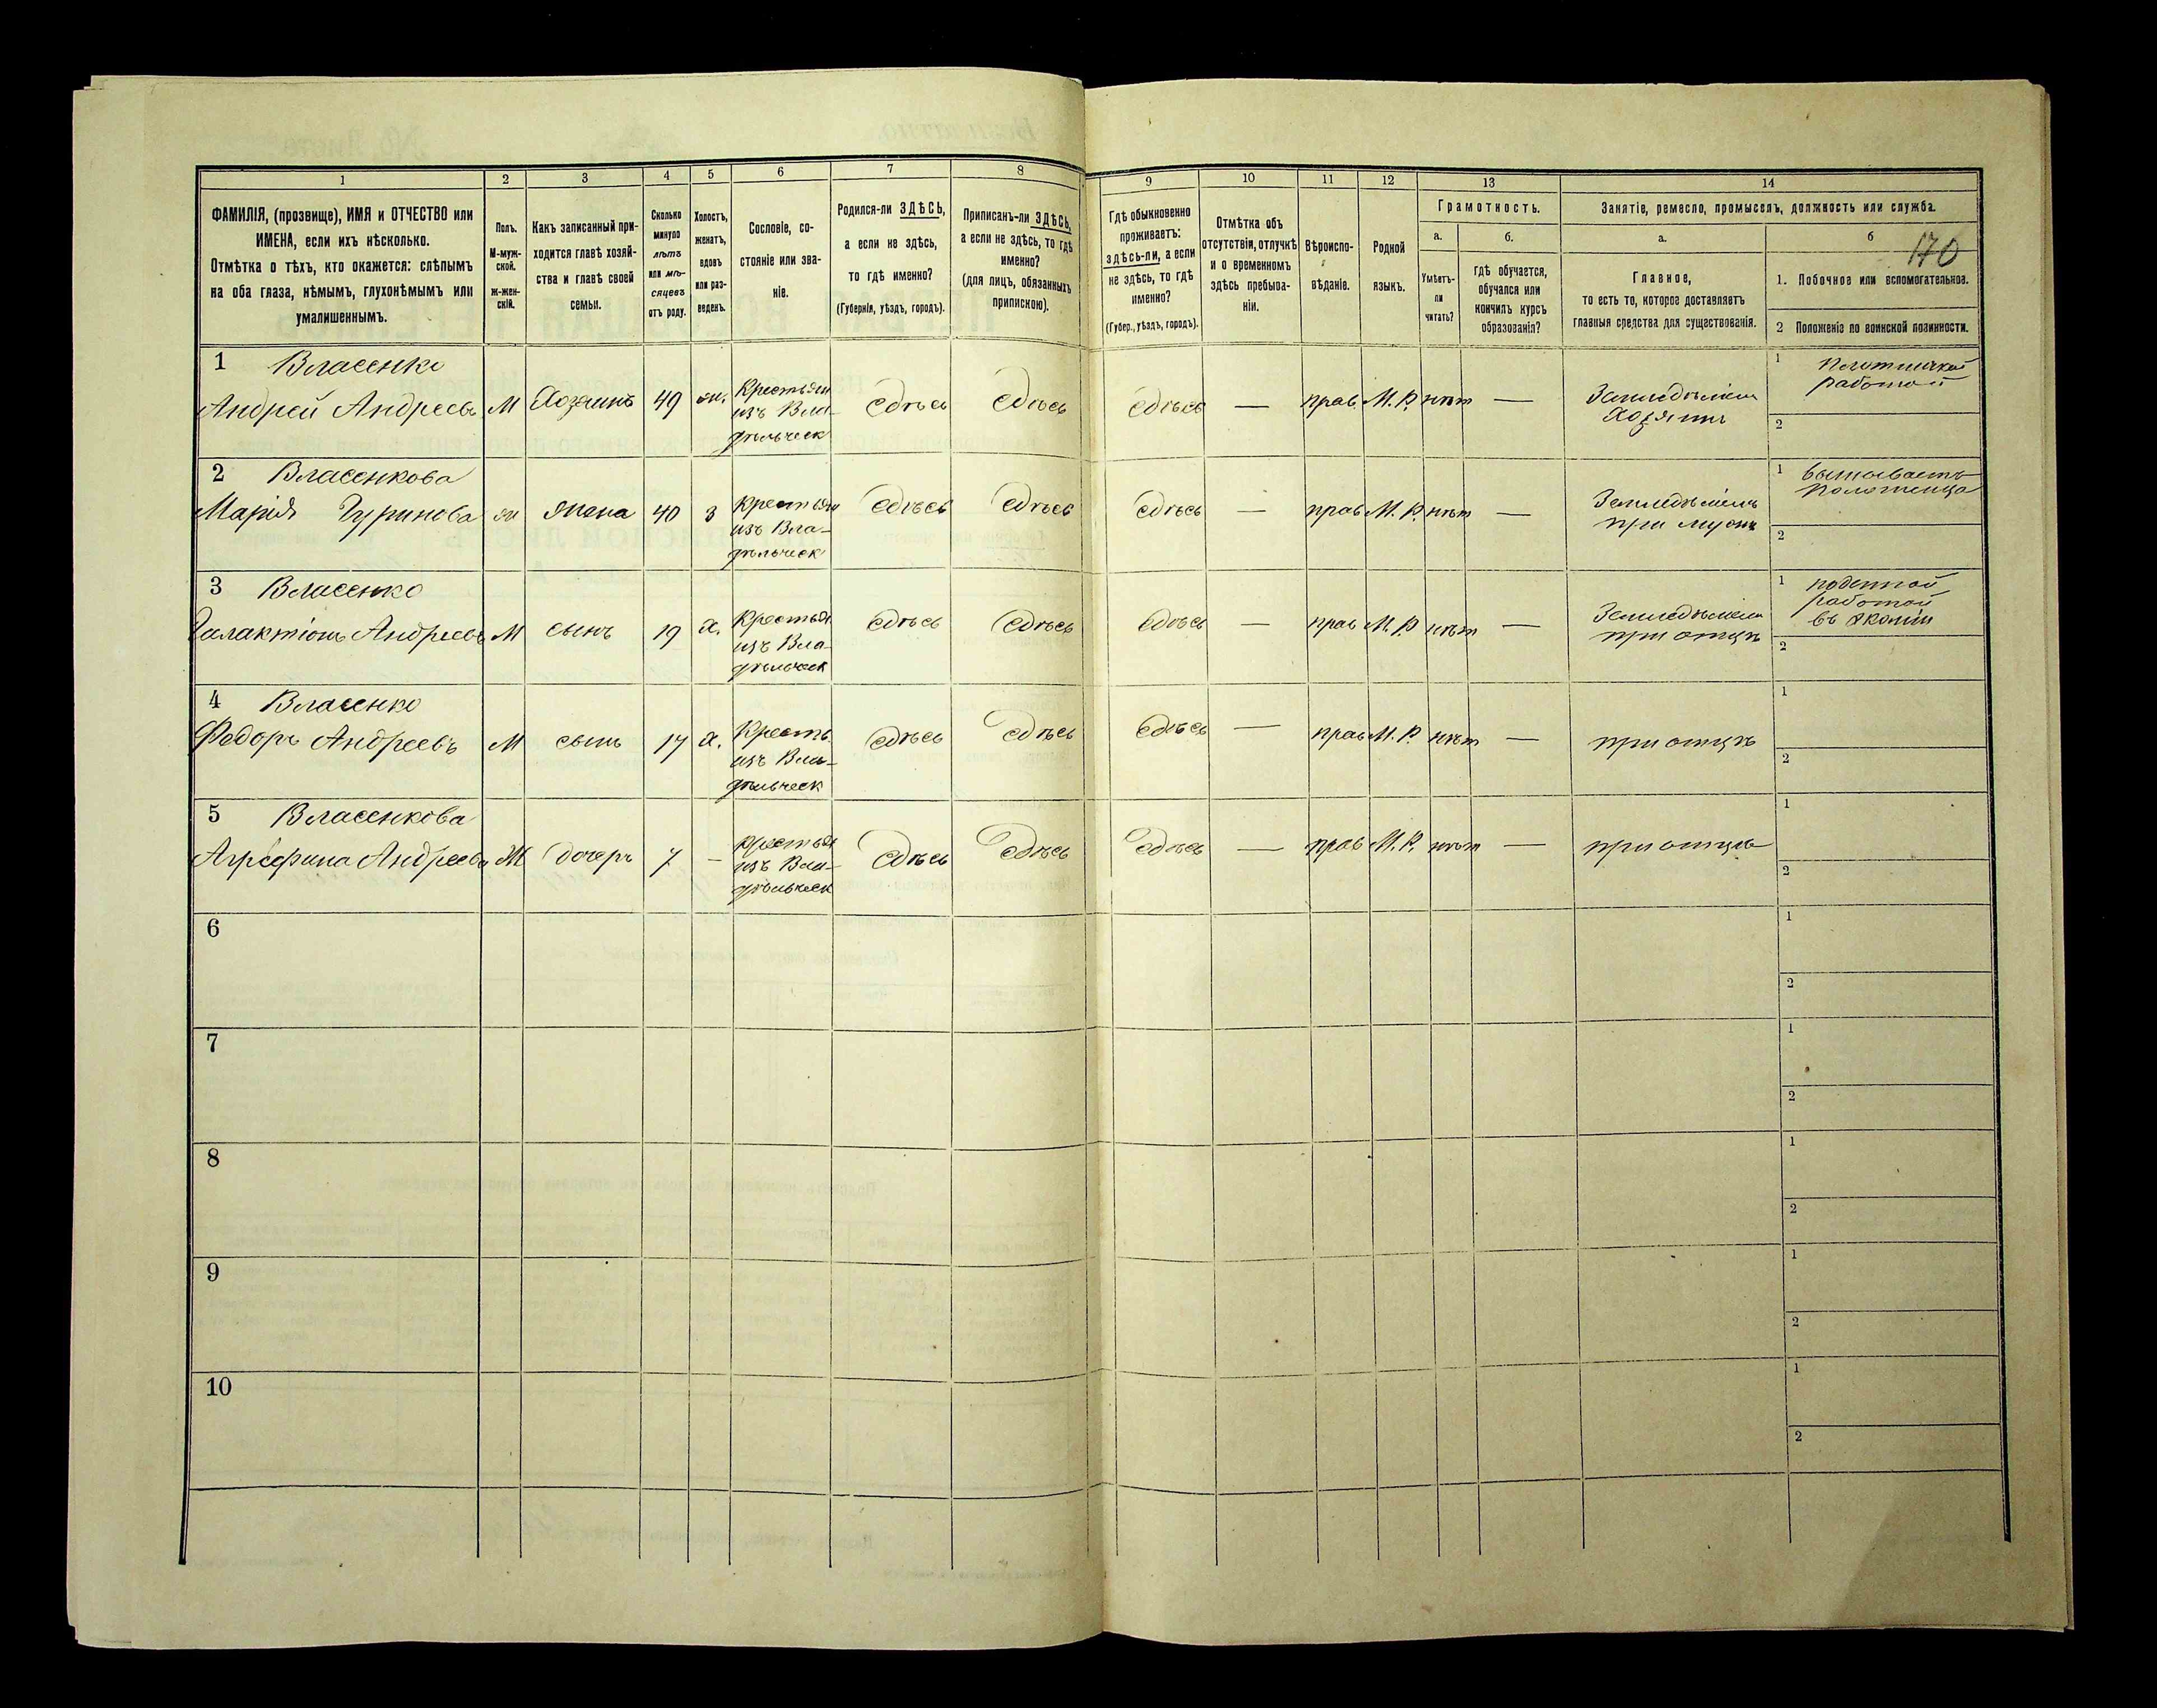 1 2 3 4 5 6 7 8 9 10 11 12 13 14
ФАМИЛІЯ, (прозвище), ИМЯ и ОТЧЕСТВО или
ИМЕНА, если ихъ нѣсколько.
Отмѣтка о тѣхъ, кто окажется: слѣпымъ
на оба глаза, нѣмымъ, глухонѣмымъ или
умалишеннымъ.
Полъ.
М-муж-
ской.
ж-жен-
скій.
Какъ записанный при-
ходится главѣ хозяй-
ства и главѣ своей
семьи.
Сколько
минуло
лѣтъ
или мѣ-
сяцевъ
отъ роду.
Холостъ,
женатъ,
вдовъ
или раз-
веденъ.
Сословіе, со-
стояніе или зва-
ніе.
Родился-ли ЗДѢСЬ,
а если не здѣсь,
то гдѣ именно?
(Губернія, уѣздъ, городъ).
Приписанъ-ли ЗДѢСЬ,
а если не здѣсь, то гдѣ
именно?
(для лицъ, обязанныхъ
припискою).
Гдѣ обыкновенно
проживаетъ:
здѣсь-ли, а если
не здѣсь, то гдѣ
именно?
(Губер., уѣздъ, городъ).
Отмѣтка объ
отсутствіи, отлучкѣ
и о временномъ
здѣсь пребыва-
ніи.
Вѣроиспо-
вѣданіе.
Родной
языкъ.
Грамотность.
а. б.
Умѣетъ-
ли
читать?
гдѣ обучается,
обучался или
кончилъ курсъ
образованія?
Занятіе, ремесло, промыселъ, должность или служба.
а. б
170
Главное,
то есть то, которое доставляетъ
главныя средства для существованія.
1. Побочное или вспомогательное.
2 Положеніе по воинской повинности.
1 Власенко
Андрей Андреевъ М Хозяинъ 49 ж. Крестьян
изъ Вла-
дѣльческ
сдѣсь сдѣсь сдѣсь — прав М. Р. нѣт —
Земледѣліем
Хозяинъ
1
работой
2
2 Власенкова
Марія Гуринова ж жена 40 з Крестьян
изъ Вла-
дѣльческ
сдѣсь сдѣсь сдѣсь — прав М. Р. нѣт —
Земледѣліемъ
при мужѣ
1
2
3 Власенко
Галактіонъ Андреевъ М сынъ 19 х. Крестья
изъ Вла-
дѣльческ
сдѣсь сдѣсь сдѣсь — прав М. Р нѣт —
Земледѣліем
при отцѣ
1 поденной
работой
въ экоміи
2
4 Власенко
Федоръ Андреевъ М сынъ 17 х. Кресть
изъ Вла-
дѣльческ
сдѣсь сдѣсь сдѣсь — прав М. Р. нѣт —
при отцѣ
1
2
5 Власенкова
Агрефина Андреева Ж дочерь 7 — Крестья
изъ Вла-
дѣльческ
сдѣсь сдѣсь сдѣсь — прав М. Р. нѣт —
при отцѣ
1
2
6
1
2
7
1
2
8
1
2
9
1
2
10
1
2